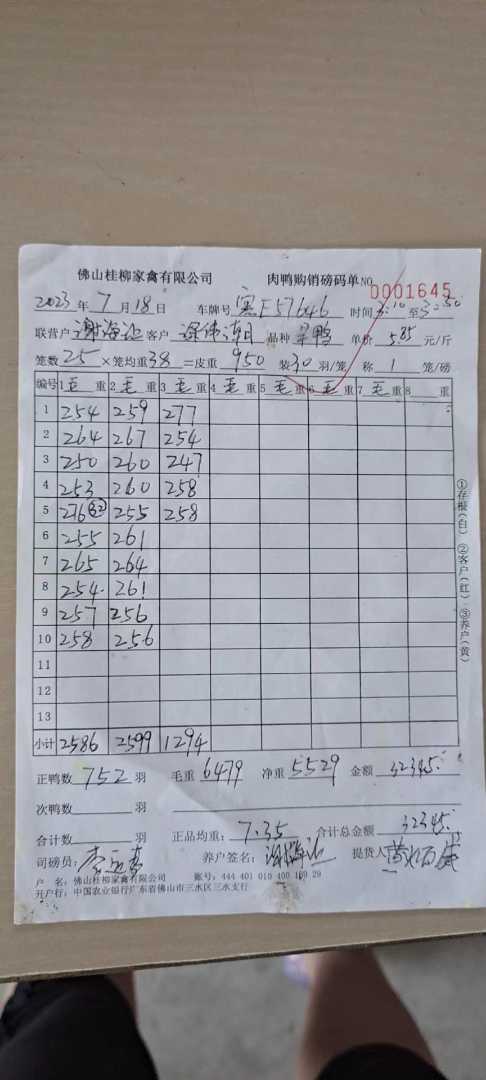 佛山桂柳家禽有限公司 肉鸭购销磅码单 NO 0001645
2023 年 7 月 18 日 车牌号 E57646 时间 3:10 至 3:50
联营户 谢海 客户 品种 鸭 单价 5.85 元/斤
笼数 25 ×笼均重 38 =皮重 950 装 30 羽/笼 称 1 笼/磅
编号 1 毛 重 2 毛 重 3 毛 重 4 毛 重 5 毛 重 6 毛 重 7 毛 重 8 重
1 254 259 277
2 264 267 254
3 250 260 247
4 253 260 258
5 276 (32) 255 258
6 255 261
7 265 264
8 254 261
9 257 256
10 258 256
11
12
13
小计 2586 2599 1294
正鸭数 752 羽 毛重 6479 净重 5529 金额 32345
次鸭数 羽
合计数 羽 正品均重: 7.35 合计总金额 32345
司磅员: 养户签名: 提货人
户 名: 佛山桂柳家禽有限公司 账号: 444 401 010 400 109 29
开户行: 中国农业银行广东省佛山市三水区三水支行
①存根(白) ②客户(红) ③养户(黄)